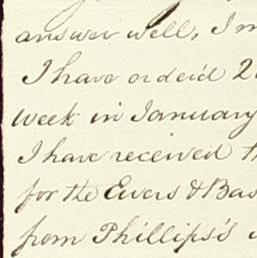 answer well, I m
I have order'd 2
week in January
I have received th
for the Ewers & Bas
from Phillips's